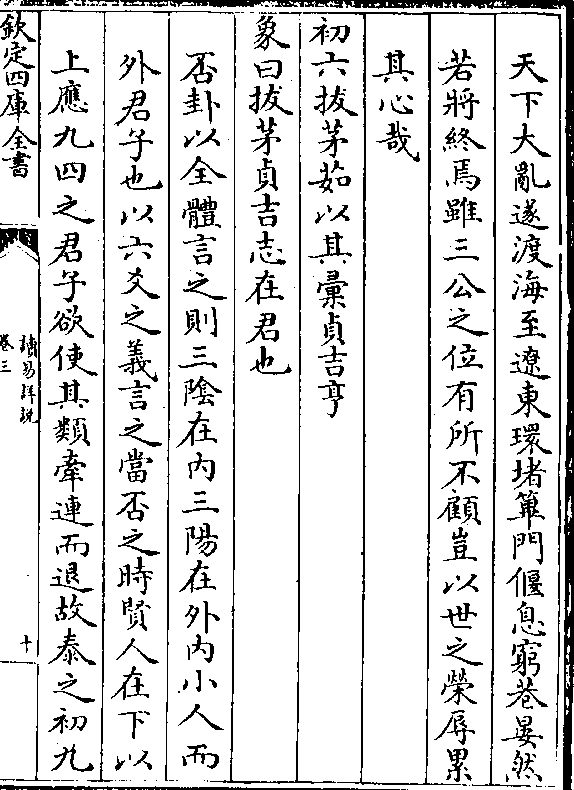 天下大亂遂渡海至遼東環堵篳門偃息窮巷晏然
若將終焉雖三公之位有所不顧豈以世之榮辱累
其心哉
初六拔茅茹以其彙貞吉亨
象曰拔茅貞吉志在君也
否卦以全體言之則三陰在内三陽在外内小人而
外君子也以六爻之義言之當否之時賢人在下以
上應九四之君子欲使其類牽連而退故泰之初九
欽定四庫全書
讀易詳說
卷三
十